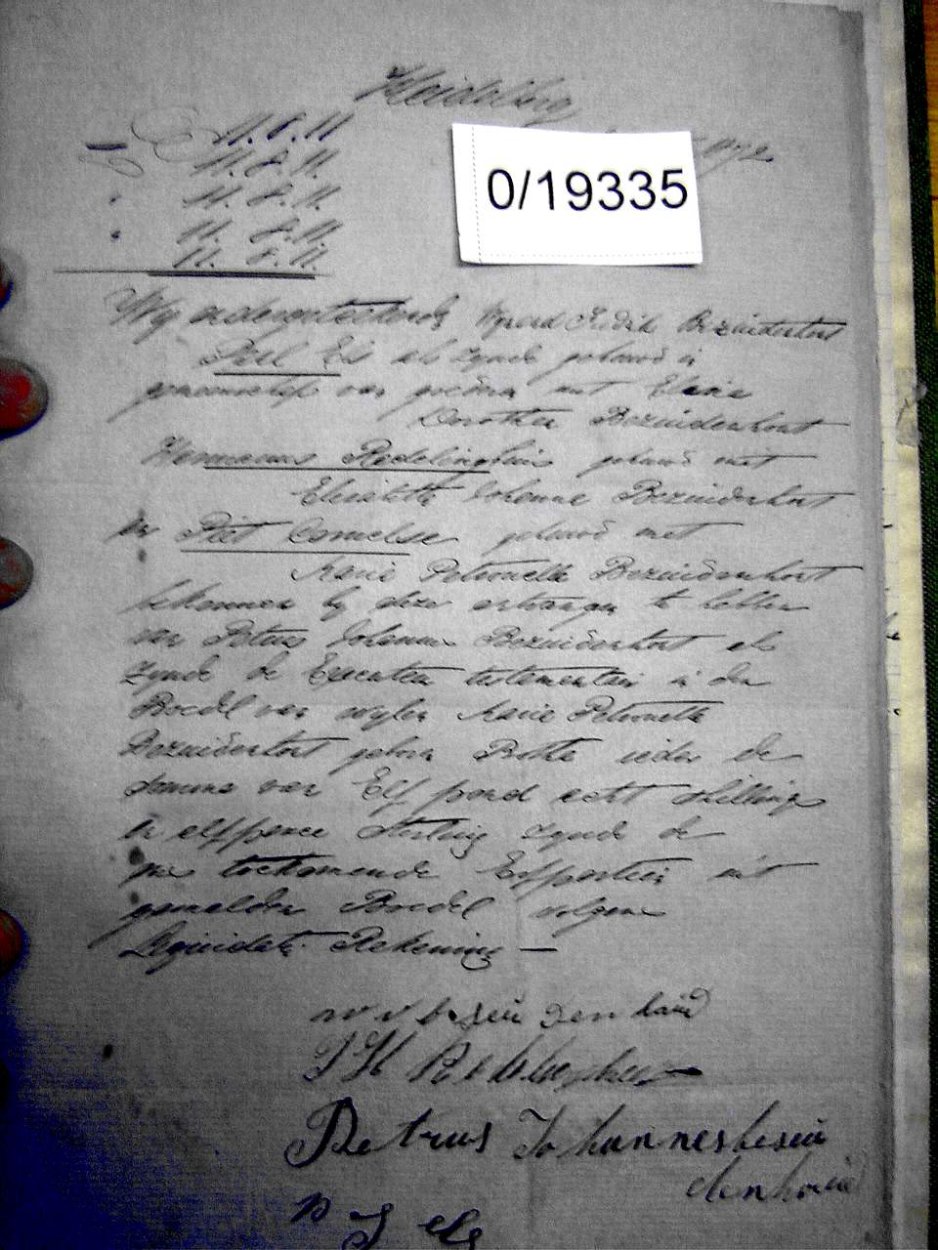 Heidelberg
1872
0/19335
£ 11.8.11
11.8.11
11.8.11
11.8.11
11.8.11
Wij ondergeteekende Bezuidenhout
Els als zynde gehuwd in
gemeenschap van goederen met
Dorothea Bezuidenhout
Hermanus Redelinghuis gehuwd met
Elisabeth Johanna Bezuidenhout
en Piet Cornelse gehuwd met
Maria Petronella Bezuidenhout
bekennen by deze ontvangen te hebben
van Petrus Johannes Bezuidenhout als
zynde de Executeur testementair in den
Boedel van wylen Maria Petronella
Bezuidenhout gebore ieder de
somma van Elf pond acht shillings
en elfpence Sterling zynde de
toekomende Erfportien uit
gemelden Boedel volgens
Liquidatie Rekening —
Petrus Johannes besui
denhoud
P J els